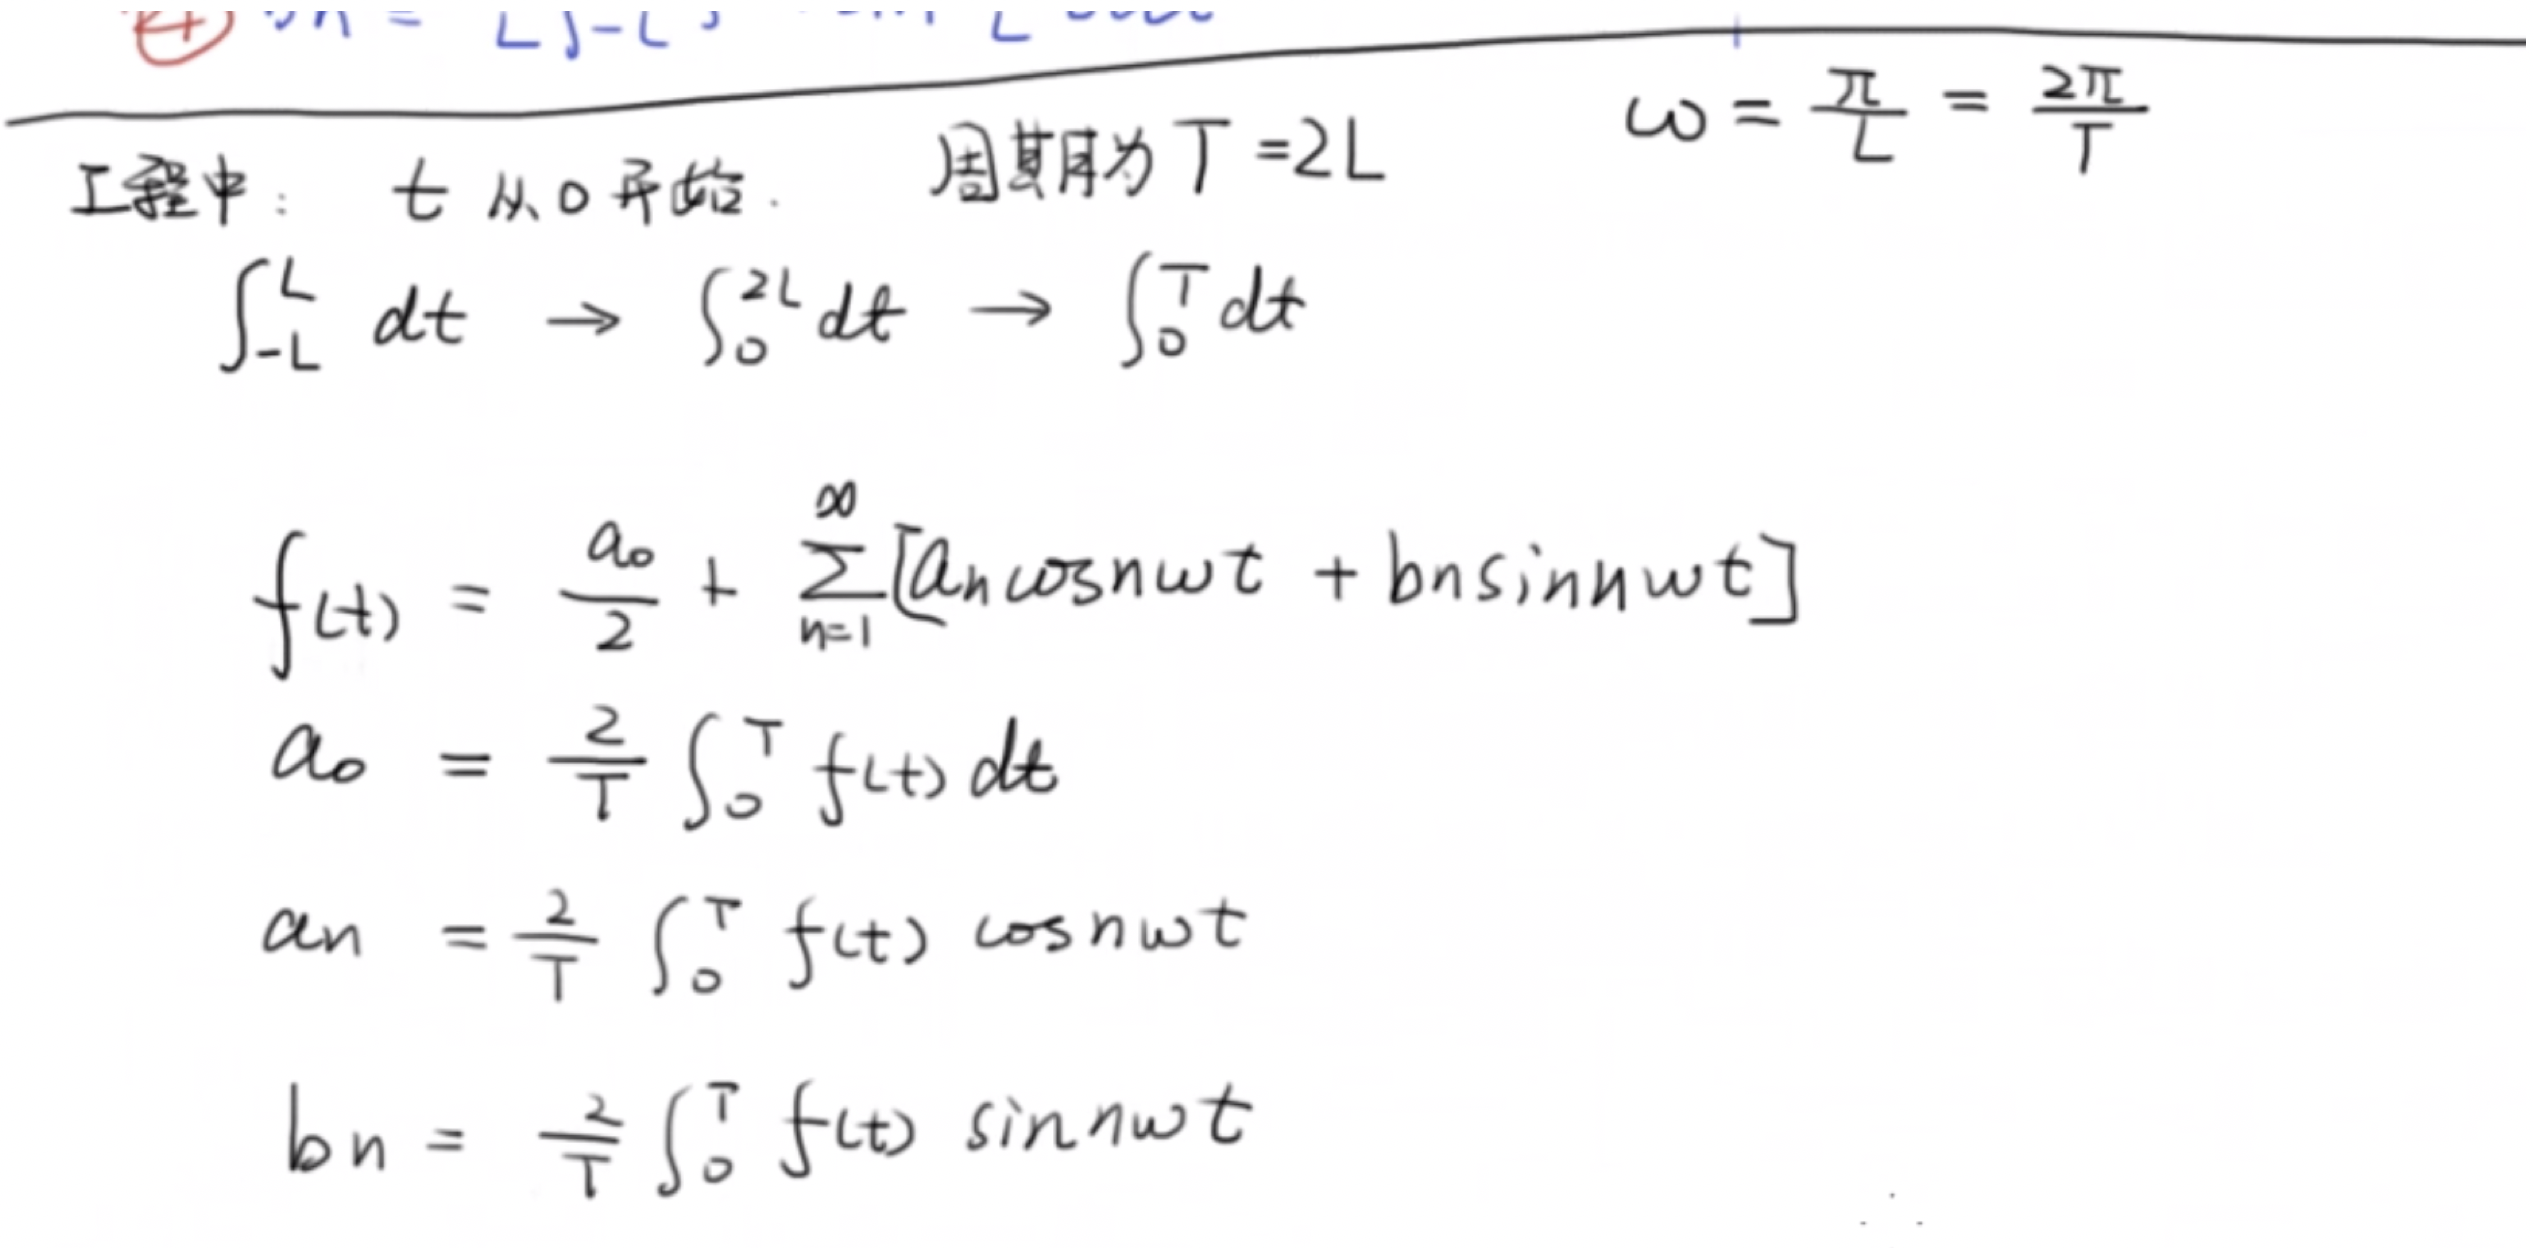 bn =
工程中: t 从 0 开始. 周期为 T = 2L ω = π/L = 2π/T
∫_{-L}^{L} dt → ∫_0^{2L} dt → ∫_0^T dt
f(t) = a₀/2 + ∑_{n=1}^{∞} [an cos nωt + bn sin nωt]
a₀ = 2/T ∫_0^T f(t) dt
an = 2/T ∫_0^T f(t) cos nωt
bn = 2/T ∫_0^T f(t) sin nωt